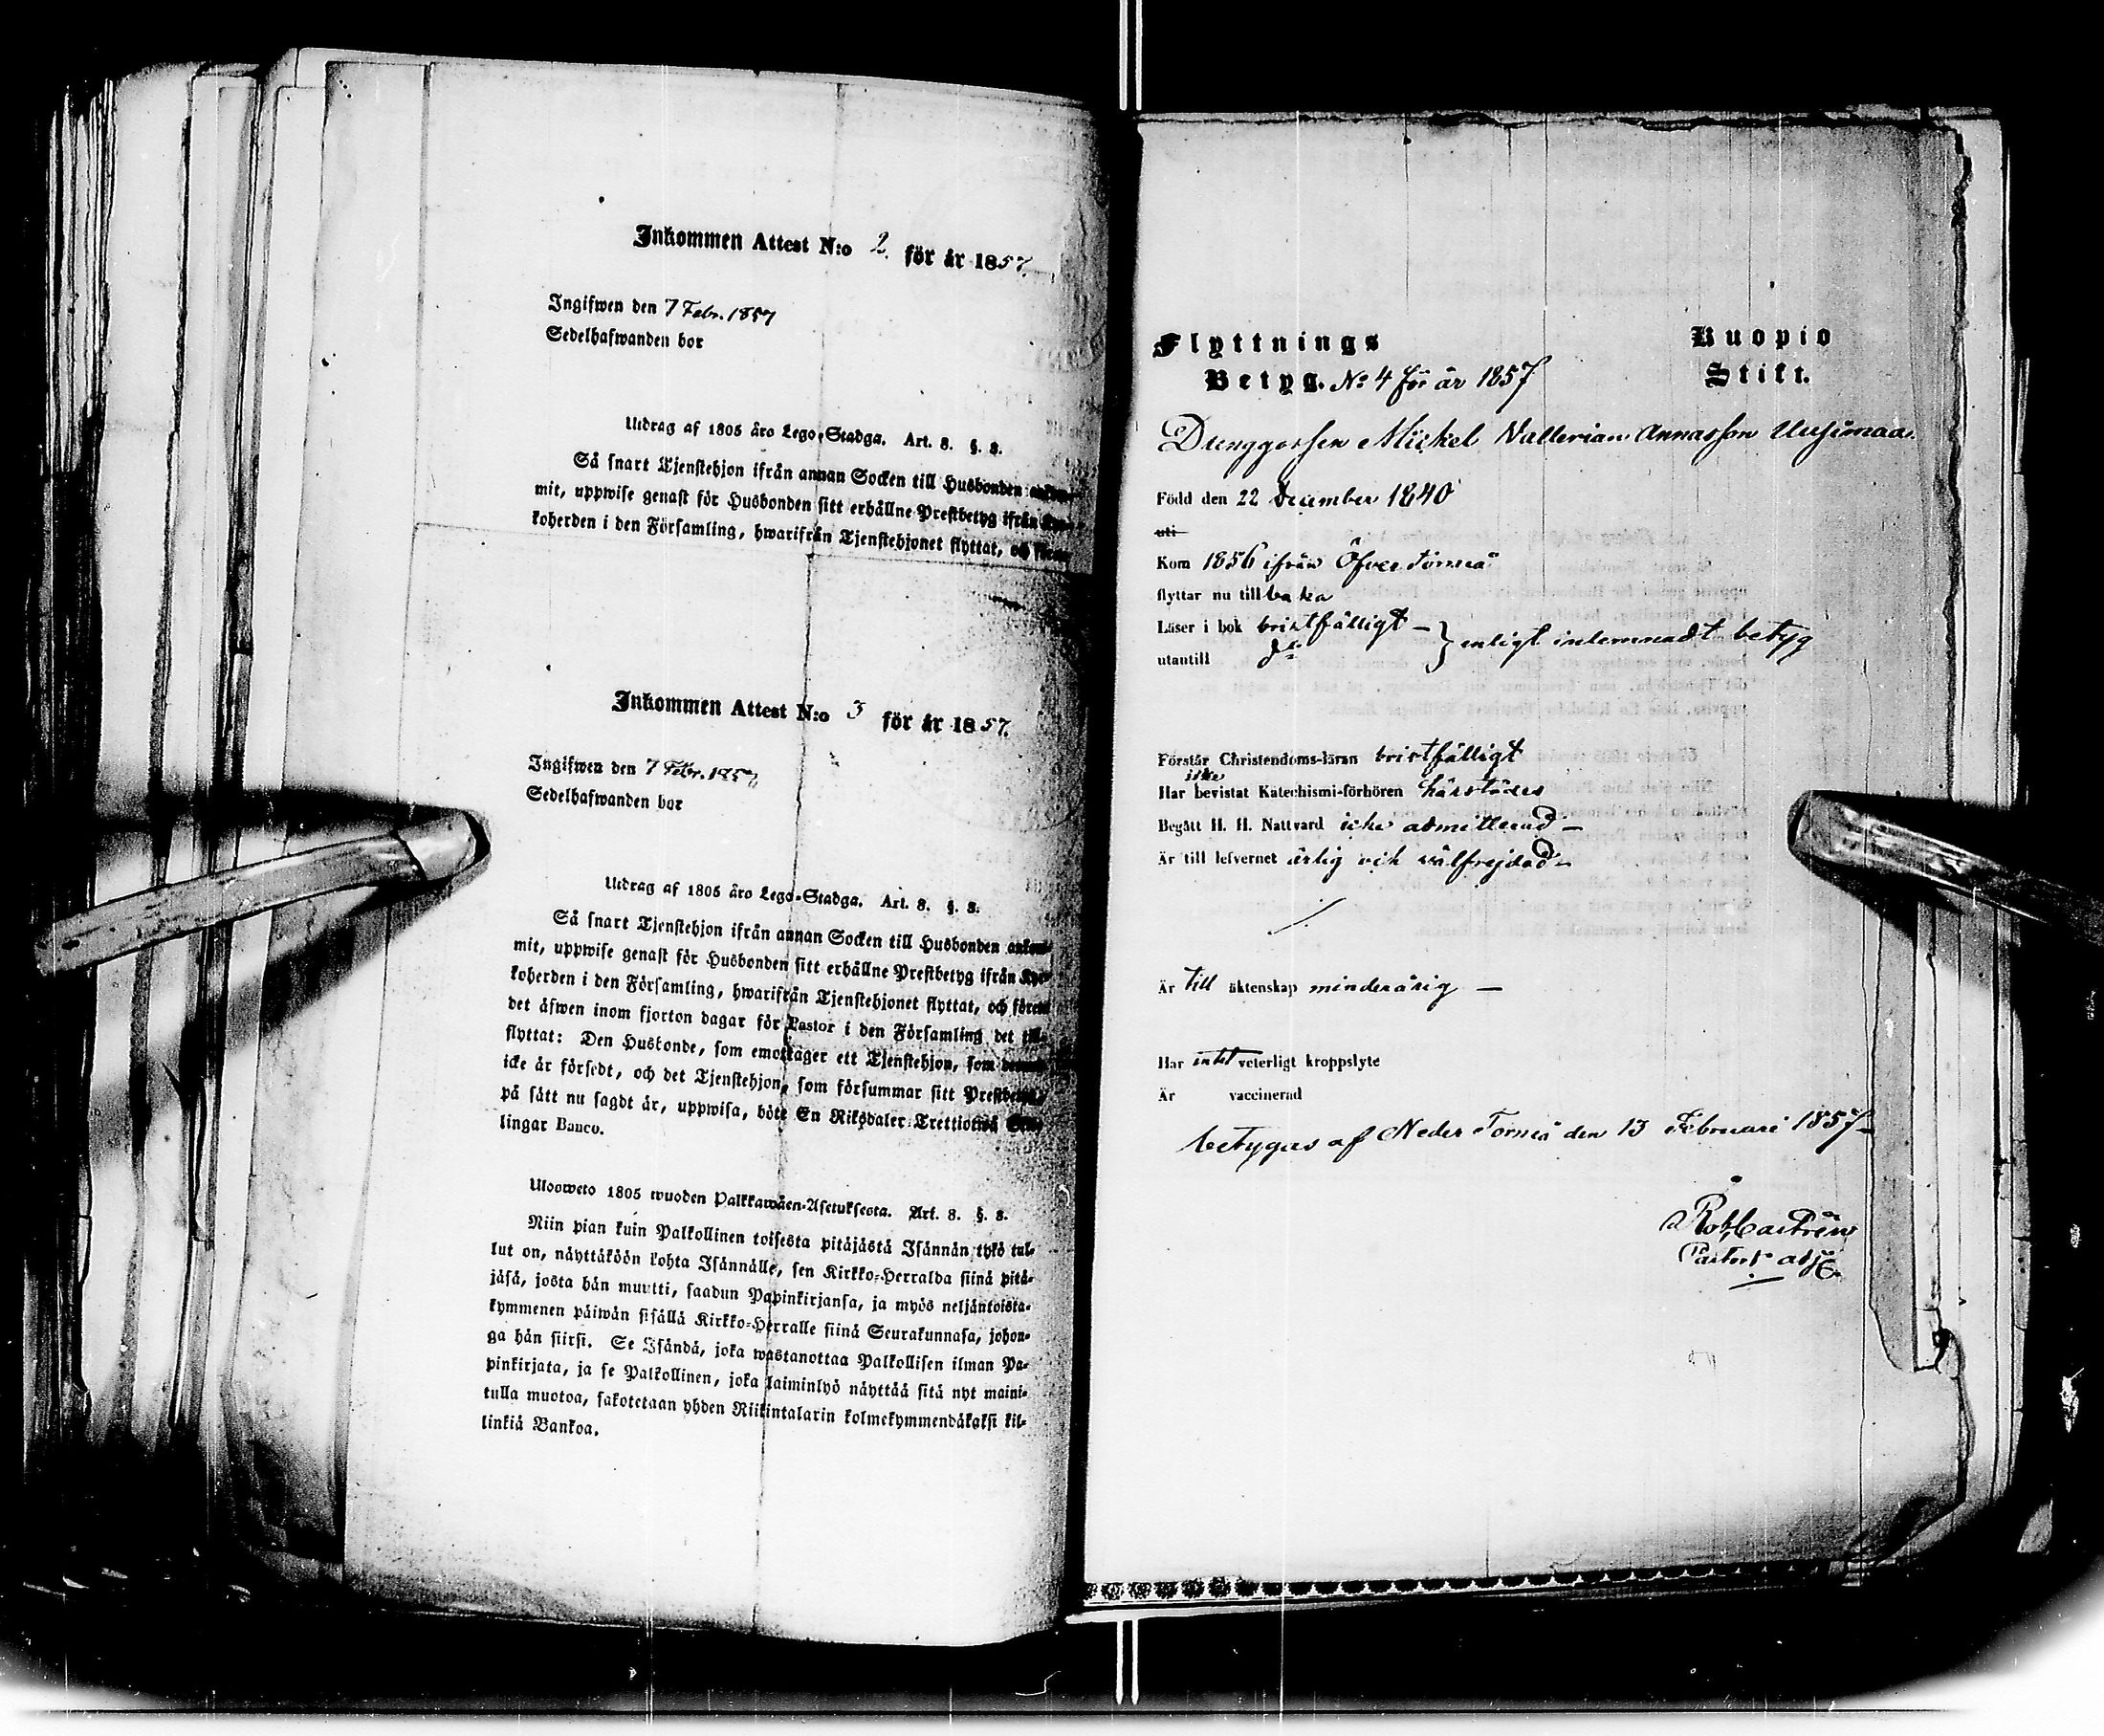 Inkommen Attest N:o 2. för år 1857.
Ingifwen den 7 Febr. 1857
Sedelhafwanden bor
Utdrag af 1805 års Lego-Stadga. Art. 8. §. 8.
Så snart Tjenstehjon ifrån annan Socken till Husbonden
mit, uppwise genast för Husbonden sitt erhållne Prestbetyg ifrån
koherden i den Församling, hwarifrån Tjenstehjonet flyttat, och
Inkommen Attest N:o 3 för år 1857.
Ingifwen den 7 Febr. 1857
Sedelhafwanden bor
Utdrag af 1805 års Lego-Stadga. Art. 8. §. 8.
Så snart Tjenstehjon ifrån annan Socken till Husbonden ankom-
mit, uppwise genast för Husbonden sitt erhållne Prestbetyg ifrån Kyr-
koherden i den Församling, hwarifrån Tjenstehjonet flyttat, och förete
det äfwen inom fjorton dagar för Pastor i den Församling det till-
flyttat: Den Husbonde, som emottager ett Tjenstehjon, som
icke är försedt, och det Tjenstehjon, som försummar sitt Prestbetyg,
på sätt nu sagdt är, uppwisa, böte En Riksdaler Trettiotwå Skil-
lingar Banco.
Ulosweto 1805 wuoden Palkkawäen-Asetuksesta. Art. 8. §. 8.
Niin pian kuin Palkollinen toisesta pitäjästä Isännän tykö tul-
lut on, näyttäköön kohta Isännälle, sen Kirkko-Herralda siinä pitä-
jäsä, josta hän muutti, saadun Papinkirjansa, ja myös neljäntoista-
kymmenen päiwän sisällä Kirkko-Herralle siinä Seurakunnasa, johon-
ga hän siirsi. Se Isändä, joka wastanottaa Palkollisen ilman Pa-
pinkirjata, ja se Palkollinen, joka laiminlyö näyttää sitä nyt maini-
tulla muotoa, sakotetaan yhden Riikintalarin kolmekymmendäkaksi kil-
linkiä Bankoa.
Flyttnings Kuopio
Betyg. No 4 för år 1857 Stift.
Drenggossen Mickel Vallerian Annasson Uusimaa
Född den 22 december 1840
uti
Kom 1856 ifrån Öfver Torneå
flyttar nu tillbaka
Läser i bok bristfälligt – } enligt inlemnadt betyg
utantill do
Förstår Christendoms-läran bristfälligt
icke
Har bevistat Katechismi-förhören härstädes
Begått H. H. Nattvard icke admitterad –
Är till lefvernet ärlig och välfrejdad –
Är till äktenskap minderårig –
Har intet veterligt kroppslyte
Är vaccinerad
betygas af Neder Torneå den 13 Februari 1857 –
Rob. Castrén
Pastors adj.